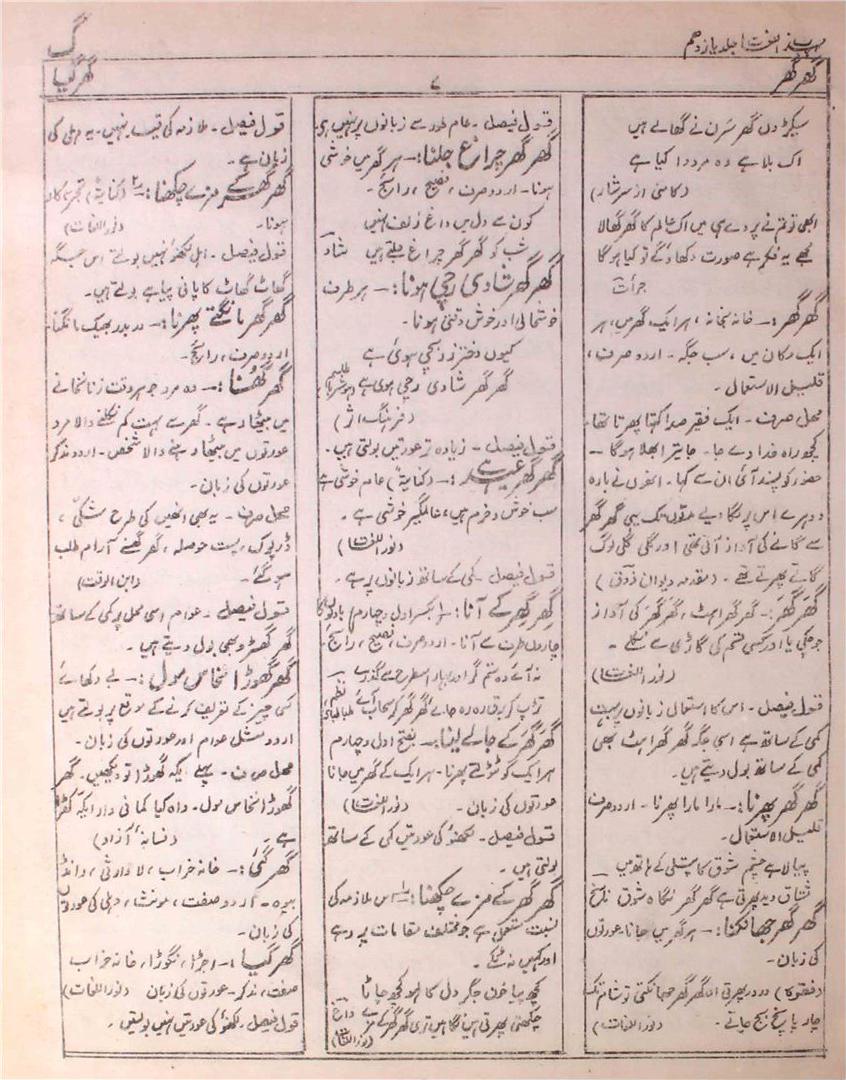 مہذب اللغت، جلد یازدهم
گ
گھر گھر
۷
گھر گیا
سیکڑوں گھر سرن نے گھالے ہیں
اک بلا ہے وہ مردوا کیا ہے
(کامنی از سرشار)
ابھی تو تم نے پردے ہی میں اک عالم کا گھر گھالا
مجھے یہ فکر ہے صورت دکھاؤ گے تو کیا ہوگا
جرأت
گھر گھر :۔ خانہ بخانہ، ہر ایک گھر میں، ہر
ایک مکان میں، سب جگہ۔ اردو صرف،
قلیل الاستعمال۔
محل صرف۔ ایک فقیر صدا کہتا پھرتا تھا
کچھ راہ خدا دے جا۔ جا تیرا بھلا ہوگا ۔۔
حضور کو پسند آئی ان سے کہا۔ انھوں نے بارہ
دوہرے اس پر لگا دیے مدتوں تک یہی گھر گھر
سے گانے کی آواز آتی تھی اور گلی گلی لوگ
گاتے پھرتے تھے۔ (مقدمہ دیوان ذوق)
گھر گھر :۔ گھر گھراہٹ، گھر گھر کی آواز
جو چکی یا اور کسی قسم کی گاڑی سے نکلے۔
(نور اللغت)
قول فیصل۔ اس کا استعمال زبانوں پر بہت
کمی کے ساتھ ہے اسی جگہ گھر گھراہٹ بھی
کمی کے ساتھ بول دیتے ہیں۔
گھر گھر پھرنا :۔ مارا مارا پھرنا۔ اردو صرف
قلیل الاستعمال۔
پیالا ہے چشم شوق کا پتلی کے ہاتھ میں
مشتاق دید پھرتی ہے گھر گھر نگاہ شوق ناسخ
گھر گھر جھانکنا :۔ ہر گھر میں جانا۔ عورتوں
کی زبان۔
(فقرہ) در در پھرتی اللہ گھر گھر جھانکتی تو شام تک
چار پانچ بج جاتے۔ (نور اللغت)
قول فیصل۔ عام طور سے زبانوں پر نہیں ہے
گھر گھر چراغ جلنا :۔ ہر گھر میں خوشی
ہونا۔ اردو صرف، فصیح، رائج۔
کون سے دل میں داغ زلف نہیں
شب کو گھر گھر چراغ جلتے ہیں شاد
گھر گھر شادی رچی ہونا :۔ ہر طرف
خوشحالی اور خوش وقتی ہونا۔
کیوں دختر زر بچی ہوئی ہے
گھر گھر شادی رچی ہوئی ہے
(فرہنگ اثر)
قول فیصل۔ زیادہ تر عورتیں بولتی ہیں۔
گھر گھر عید ہے :۔ (کنایۃً) عام خوشی ہے
سب خوش و خرم ہیں، عالمگیر خوشی ہے۔
(نور اللغت)
قول فیصل۔ کمی کے ساتھ زبانوں پر ہے۔
گھر گھر کے آنا :۔ بکسر اول و چہارم) بادلوں کا
چاروں طرف سے آنا۔ اردو صرف، فصیح، رائج۔
نہ آئے وہ ستم گر اور بہار اس طرح سے گذرے
تڑپ کر برق رہ رہ جائے گھر گھر کر سحاب آئے نظم طباطبائی
گھر گھر کے جالے لینا۔ بفتح اول و چہارم
ہر ایک کو ٹوٹتے پھرنا۔ ہر ایک کے گھر میں جانا
عورتوں کی زبان۔ (نور اللغت)
قول فیصل۔ لکھنؤ کی عورتیں کمی کے ساتھ
بولتی ہیں۔
گھر گھر کے مزے چکھنا :۔ اس ملازمہ کی
نسبت مستعمل ہے جو مختلف مقامات پر رہے
اور کہیں نہ ٹکے۔
کچھ پیا خون جگر دل کا لہو کچھ چاٹا
چکھتی پھرتی ہیں نگاہیں تری گھر گھر کے مزے داغ
(نور اللغت)
قول فیصل۔ ملازمہ کی قید نہیں۔ یہ دہلی کی
زبان ہے۔
گھر گھر کے مزے چکھنا :۔ (کنایۃً) تجربہ کار
ہونا۔ (نور اللغات)
قول فیصل۔ اہل لکھنؤ نہیں بولتے اس جگہ
گھاٹ گھاٹ کا پانی پیا ہے بولتے ہیں۔
گھر گھر مانگتے پھرنا :۔ در بدر بھیک مانگنا
اردو صرف، رائج۔
گھر گھسنا :۔ وہ مرد جو ہر وقت زنانخانے
میں بیٹھا رہے۔ گھر سے بہت کم نکلنے والا مرد
عورتوں میں بیٹھا رہنے والا شخص۔ اردو مذکر
عورتوں کی زبان۔
محل صرف۔ یہ بھی انھیں کی طرح شکی،
ڈرپوک، پست حوصلہ، گھر گھسنے آرام طلب
ہو گئے۔ (ابن الوقت)
قول فیصل۔ عوام اسی محل پر کمی کے ساتھ
گھر گھسڑو بھی بول دیتے ہیں۔
گھر گھوڑا نخاس مول :۔ بے دکھائے
کسی چیز کے تعریف کرنے کے موقع پر بولتے ہیں
اردو مثل عوام اور عورتوں کی زبان۔
محل صرف۔ پہلے یکہ گھوڑا تو دیکھیں۔ گھر
گھوڑا نخاس مول۔ واہ کیا کمانی دار ایکہ کھڑا
ہے۔ (فسانۂ آزاد)
گھر گئی :۔ خانہ خراب، لا وارثی، رانڈ
بیوہ۔ اردو صفت، مونث، دہلی کی عورتوں
کی زبان۔
گھر گیا :۔ اجڑا، نگوڑا، خانہ خراب
صفت، مذکر۔ عورتوں کی زبان (نور اللغات)
قول فیصل۔ لکھنؤ کی عورتیں نہیں بولتیں۔